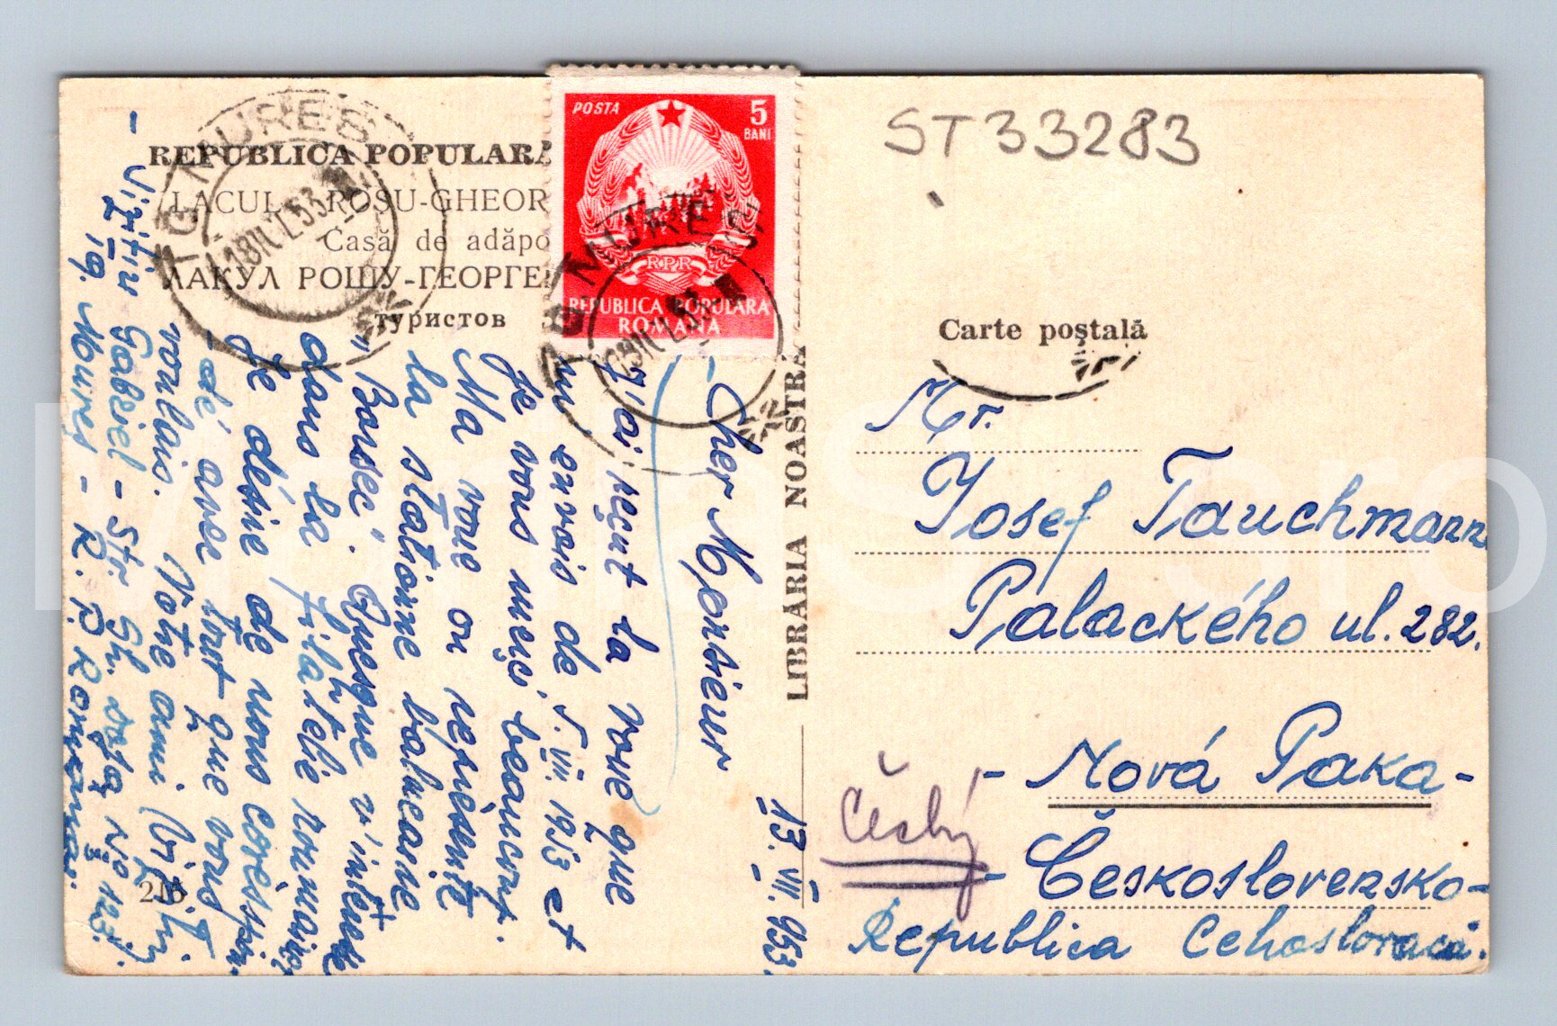 ST33283
REPUBLICA POPULARĂ
LACUL ROȘU-GHEOR
Casă de adăpo
ЛАКУЛ РОШУ-ГЕОРГЕ
туристов
POSTA
5
BANI
RPR
REPUBLICA POPULARA
ROMANA
TG. MUREȘ
TG. MUREȘ
Carte poștală
LIBRĂRIA NOASTRĂ
13. VII. 953.
Cher Monsieur
J'ai reçut la vue que
m envois de 5. VII. 1953 et
Je vous merçi beaucout.
Ma vue ou represente
la statione balneaire
"Borsec". Quesque v'intende
dans la filatelie roumaine
Je désire de nous corespon
-de' avec tout que vous
voulais. Votre ami
Gabriel - Str. Gh. Doja No 123.
Tg. Mureș - R. P. Romana.
215
Mr.
Josef Tauchmann
Palackého ul. 282.
- Nová Paka -
Český
- Československo -
Republica Cehoslovacă.